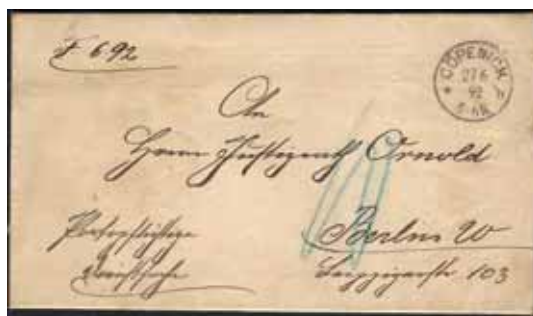 F 692
CÖPENICK
27 6
92
An
Herrn Justizrath Arnold
Portopflichtige
Dienstsache
Berlin W
Leipzigerstr 103